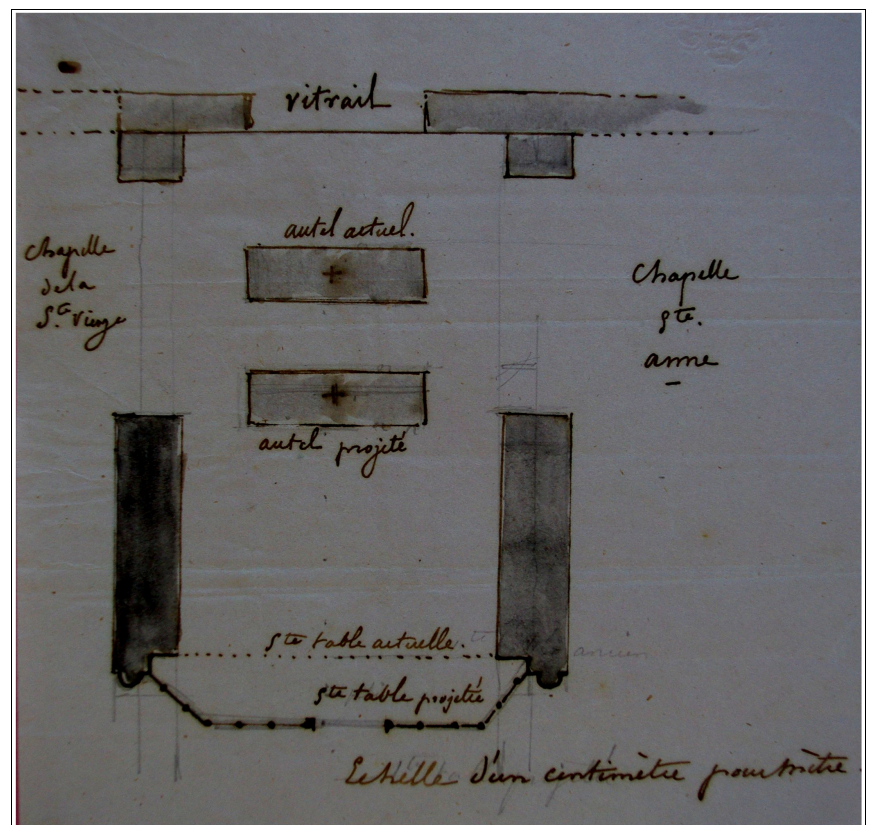 vitrail
autel actuel.
Chapelle
de la
S.te Vierge
Chapelle
Ste.
anne
autel projeté
Ste table actuelle.
Ste table projetée
Echelle d'un centimètre pour mètre.
ancien